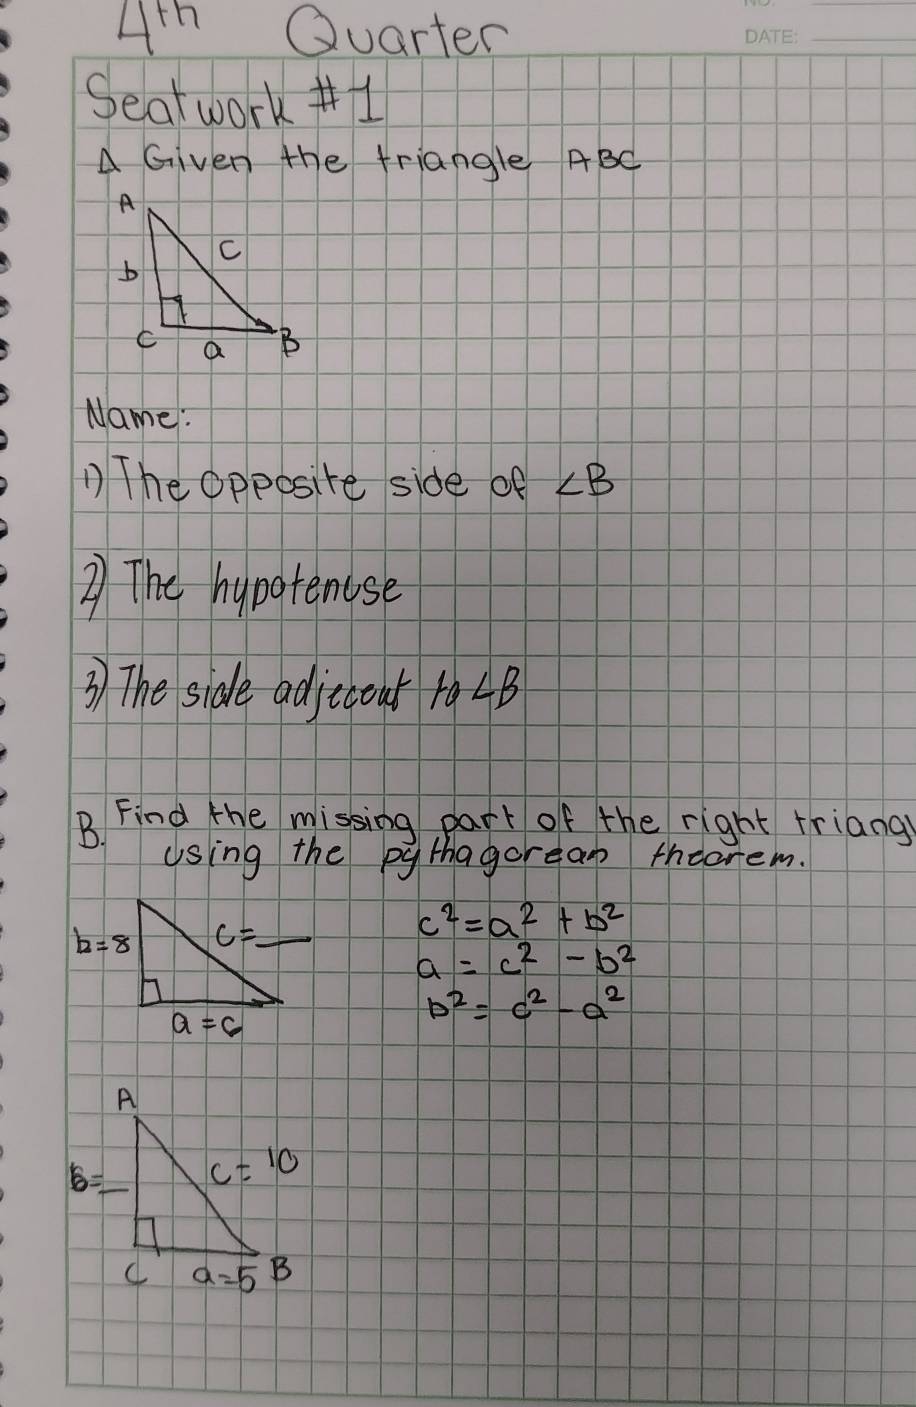 NO.
4th Quarter
DATE:
Seatwork #1
A Given the triangle ABC
A
c
b
C
a
B
Name:
1) The opposite side of ∠B
2) The hypotenuse
3) The side adjecent to ∠B
B. Find the missing part of the right triangl
using the pythagorean theorem.
b=8
c=__
a=6
c²=a² + b²
a = c² - b²
b² = c² - a²
A
b=__
c= 10
C
a=5
B